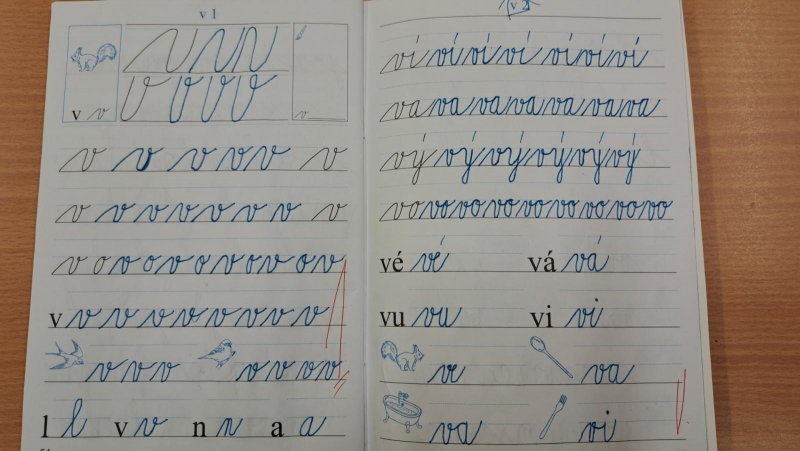 v 1
v v v
v v v v
v v
v
v v v v v v
v v v v v v v v
v o v o v o v o v o v
v v v v v v v v v
v v v v v v v
l l v v n n a a
v 2
ví ví ví ví ví ví ví
va va va va va va va
vý vý vý vý vý vý
vo vo vo vo vo vo vo vo vo
vé vé vá vá
vu vu vi vi
ve va
va vi